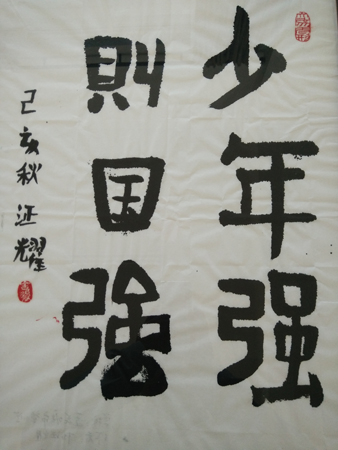 少年强
則国強
己亥秋汪耀